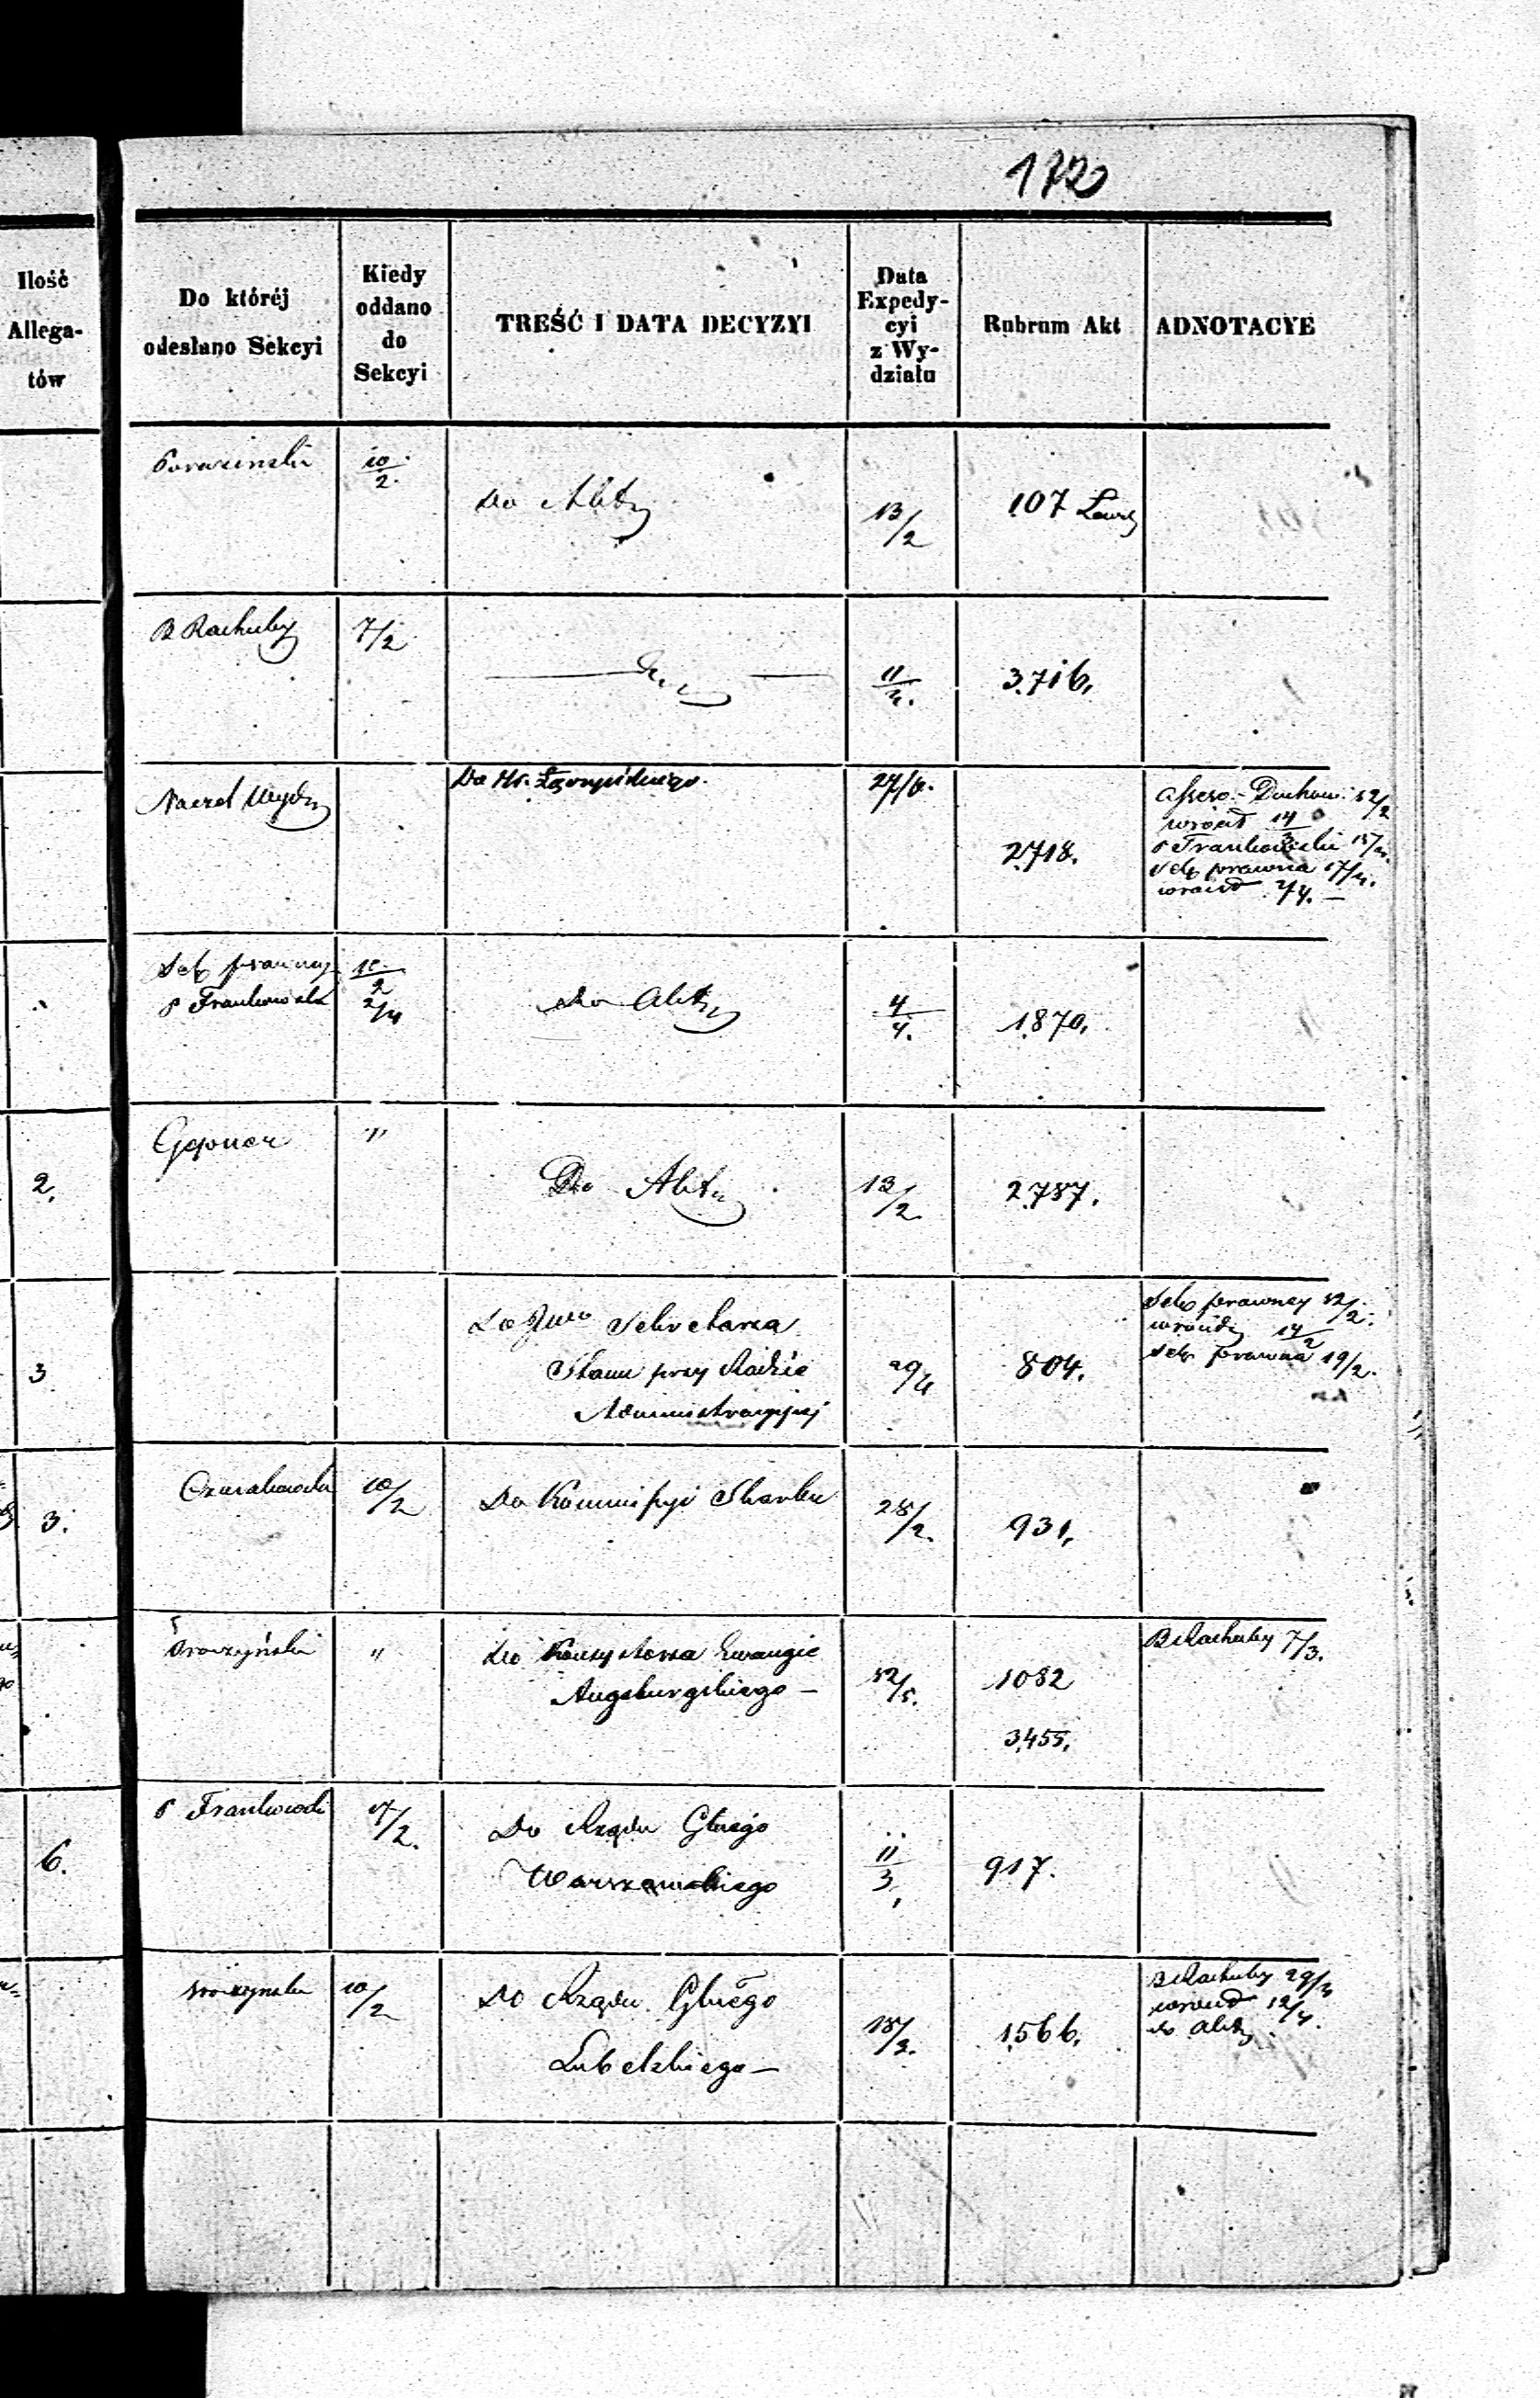 172
Ilość
Allega-
tów
Do któréj
odesłano Sekcyi
Kiedy
oddano
do
Sekcyi
TREŚĆ I DATA DECYZYI
Data
Expedy-
cyi
z Wy-
działu
Rubrum Akt
ADNOTACYE
10/2.
Do Akt
13/2
107
B Rachuby
7/2
11/4.
3.716.
Naczel Wydz
Do Hr.
27/6.
2718.
12/2
wrócił 14/3
P Frankowski 15/4.
Sek prawna 17/4.
wrócił 2/4. —
Sek prawny
P Frankowski
10/2
2/4
Do Akt
4/4.
1.870.
2.
Gepner
"
Do Akt
13/2.
2.787.
3
Do JWo Sekretarza
Stanu przy Radzie
Administracyjnej
29/4
804.
Sek prawney 12/2.
14/2
Sek prawna 19/2.
3.
10/2
Do Kommissyi Skarbu
28/2.
931.
"
Do Konsystorza Ewangie
Augsburgskiego —
12/5.
1082
3.455.
B Rachuby 7/3.
6.
P Frankowski
17/2.
Do Rządu Gbnego
Warszawskiego
11/3
917.
10/2
Do Rządu Gbnego
Lubelskiego —
18/3.
1.566.
B Rachuby 29/3
wrócił 12/4.
do Akt